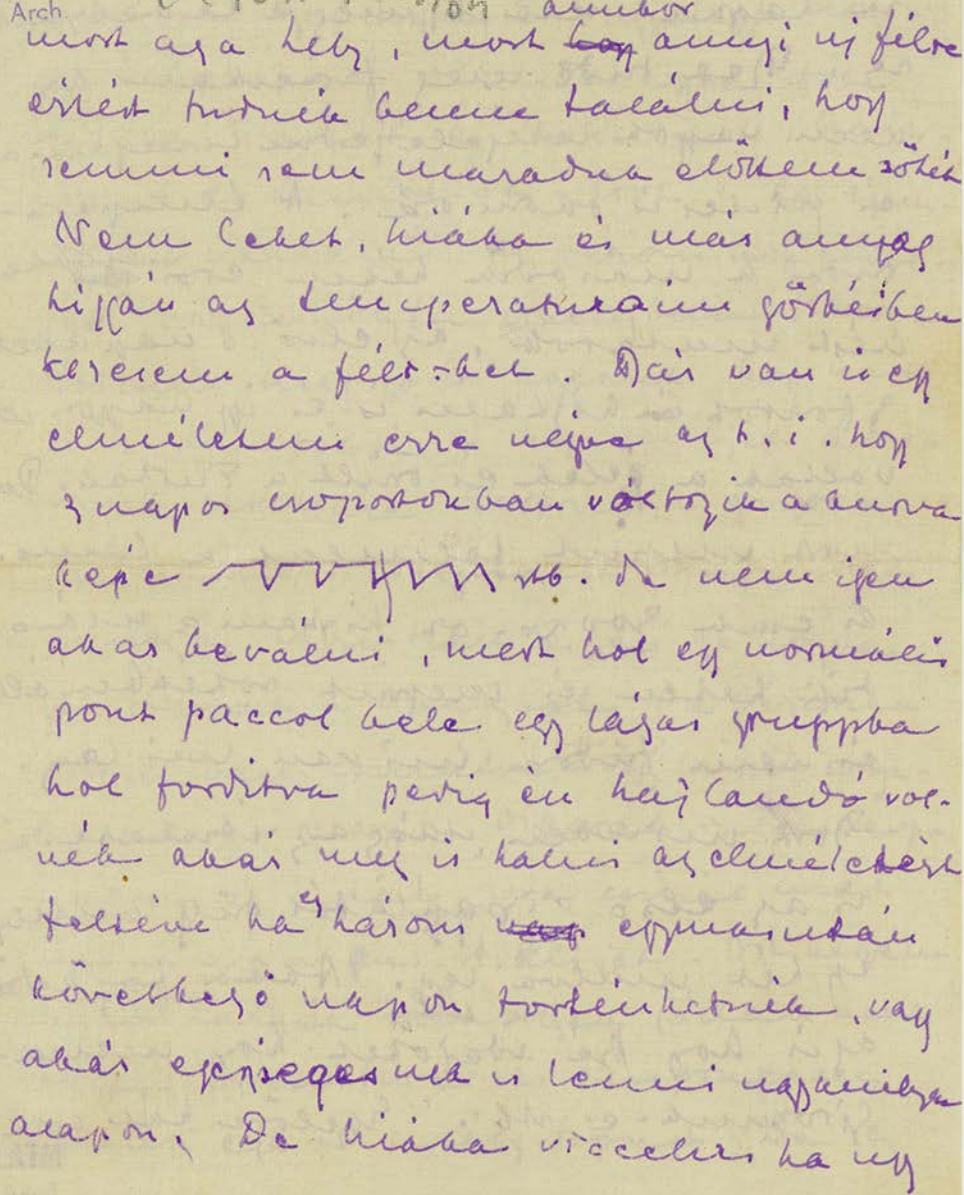 Arch.
annibor
most az a hely, most hog annyi uj félre
értést tudnék benne találni, hogy
semmi sem maradna előttem sötét
Nem lehet, hiába és más anyag
híjján az temperaturáim görbéiben
keresem a félr-ket. Már van is egy
elméletem erre nézve az t. i. hogy
3 napos csoportokban változik a
képe stb. de nem igen
akar beválni, mert hol egy normális
pont paccol bele egy lázas gruppba
hol forditva pedig én hajlandó vol-
nék akár meg is halni az elmélet
ha ez három nap egymásután
következő napon történhetnék, vagy
akár egészségesnek is lenni ugyanilyen
alapon. De hiába viccelek ha ugy